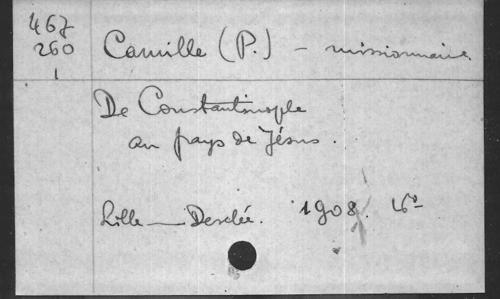 467
260
1
Camille (P.) - missionnaire
De Constantinople
au pays de Jésus.
Lille — Desclée. 1908.